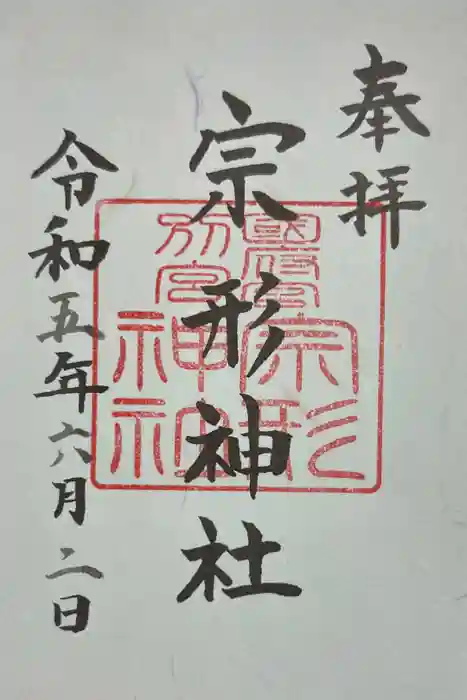 奉拝
宗形神社
國府宮
別宮
宗形
神社
令和五年六月二日